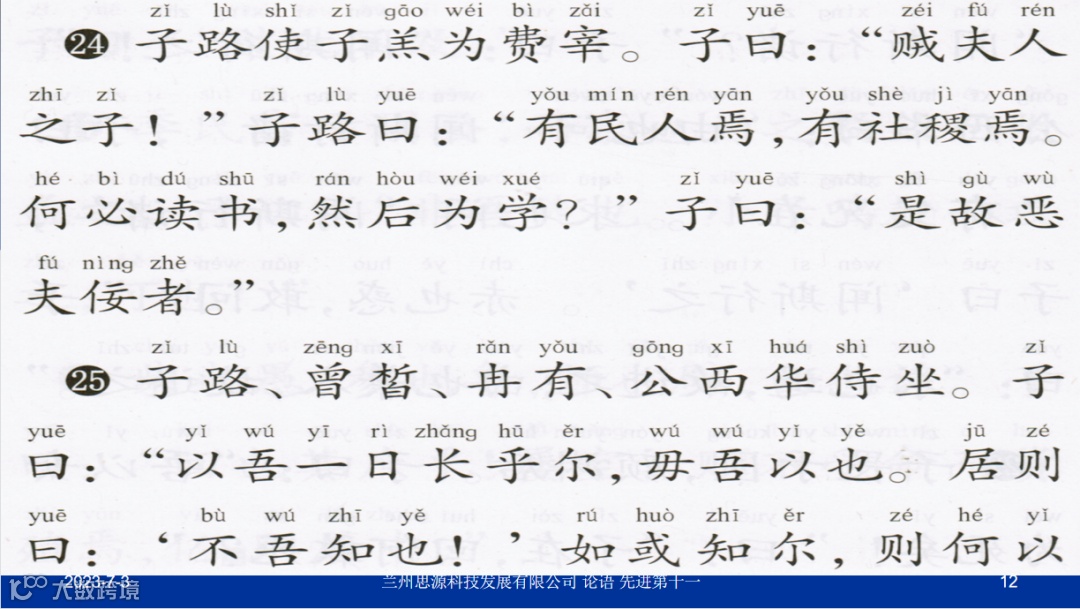 zǐ lù shǐ zǐ gāo wéi bì zǎi zǐ yuē zéi fú rén
24 子路使子羔为费宰。子曰:“贼夫人
zhī zǐ zǐ lù yuē yǒu mín rén yān yǒu shè jì yān
之子!”子路曰:“有民人焉,有社稷焉。
hé bì dú shū rán hòu wéi xué zǐ yuē shì gù wù
何必读书,然后为学?”子曰:“是故恶
fú nìng zhě
夫佞者。”
zǐ lù zēng xī rǎn yǒu gōng xī huá shì zuò zǐ
25 子路、曾皙、冉有、公西华侍坐。子
yuē yǐ wú yī rì zhǎng hū ěr wú wú yǐ yě jū zé
曰:“以吾一日长乎尔,毋吾以也。居则
yuē bù wú zhī yě rú huò zhī ěr zé hé yǐ
曰:‘不吾知也!’如或知尔,则何以
2023-7-3 兰州思源科技发展有限公司 论语 先进第十一 12
大数跨境